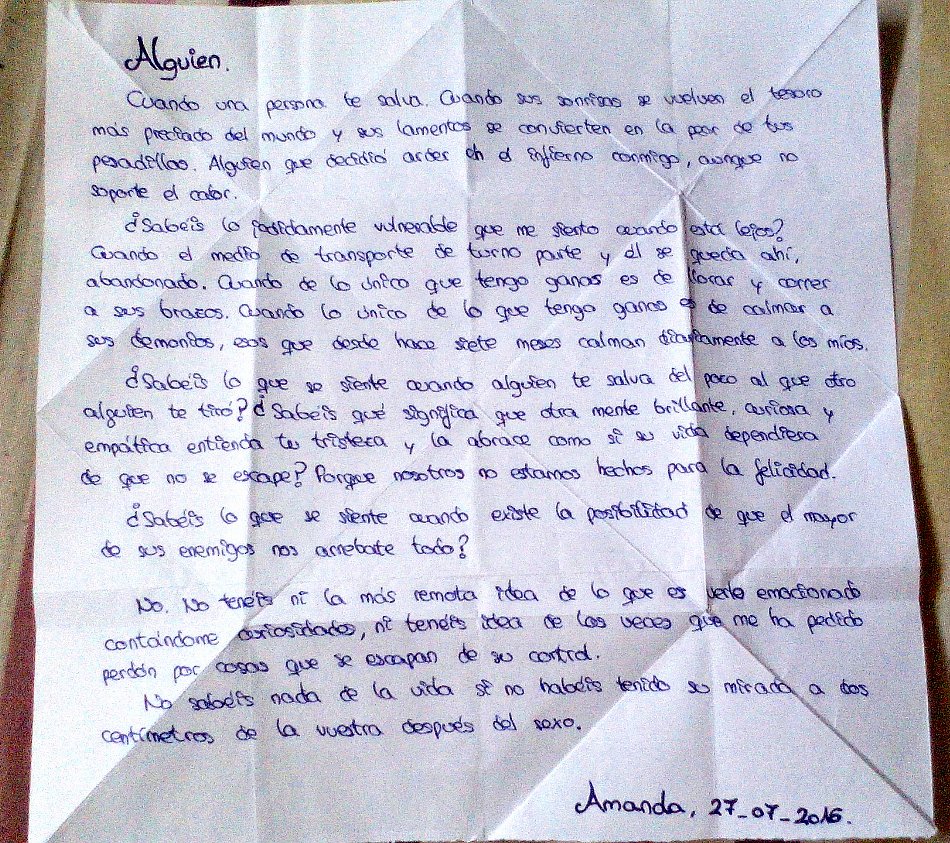 Alguien.
Cuando una persona te salva. Cuando sus sonrisas se vuelven el tesoro
más preciado del mundo y sus lamentos se convierten en la peor de tus
pesadillas. Alguien que decidió arder en el infierno conmigo, aunque no
soporte el calor.
¿Sabéis lo jodidamente vulnerable que me siento cuando está lejos?
Cuando el medio de transporte de turno parte y él se queda ahí,
abandonado. Cuando de lo único que tengo ganas es de llorar y correr
a sus brazos. Cuando lo único de lo que tengo ganas es de calmar a
sus demonios, esos que desde hace siete meses calman diariamente a los míos.
¿Sabéis lo que se siente cuando alguien te salva del pozo al que otro
alguien te tiró? ¿Sabéis qué significa que otra mente brillante, curiosa y
empática entienda tu tristeza y la abrace como si su vida dependiera
de que no se escape? Porque nosotros no estamos hechos para la felicidad.
¿Sabéis lo que se siente cuando existe la posibilidad de que el mayor
de sus enemigos nos arrebate todo?
No. No tenéis ni la más remota idea de lo que es verlo emocionado
contándome curiosidades, ni tenéis idea de las veces que me ha pedido
perdón por cosas que se escapan de su control.
No sabéis nada de la vida si no habéis tenido su mirada a dos
centímetros de la vuestra después del sexo.
Amanda, 27-07-2016.